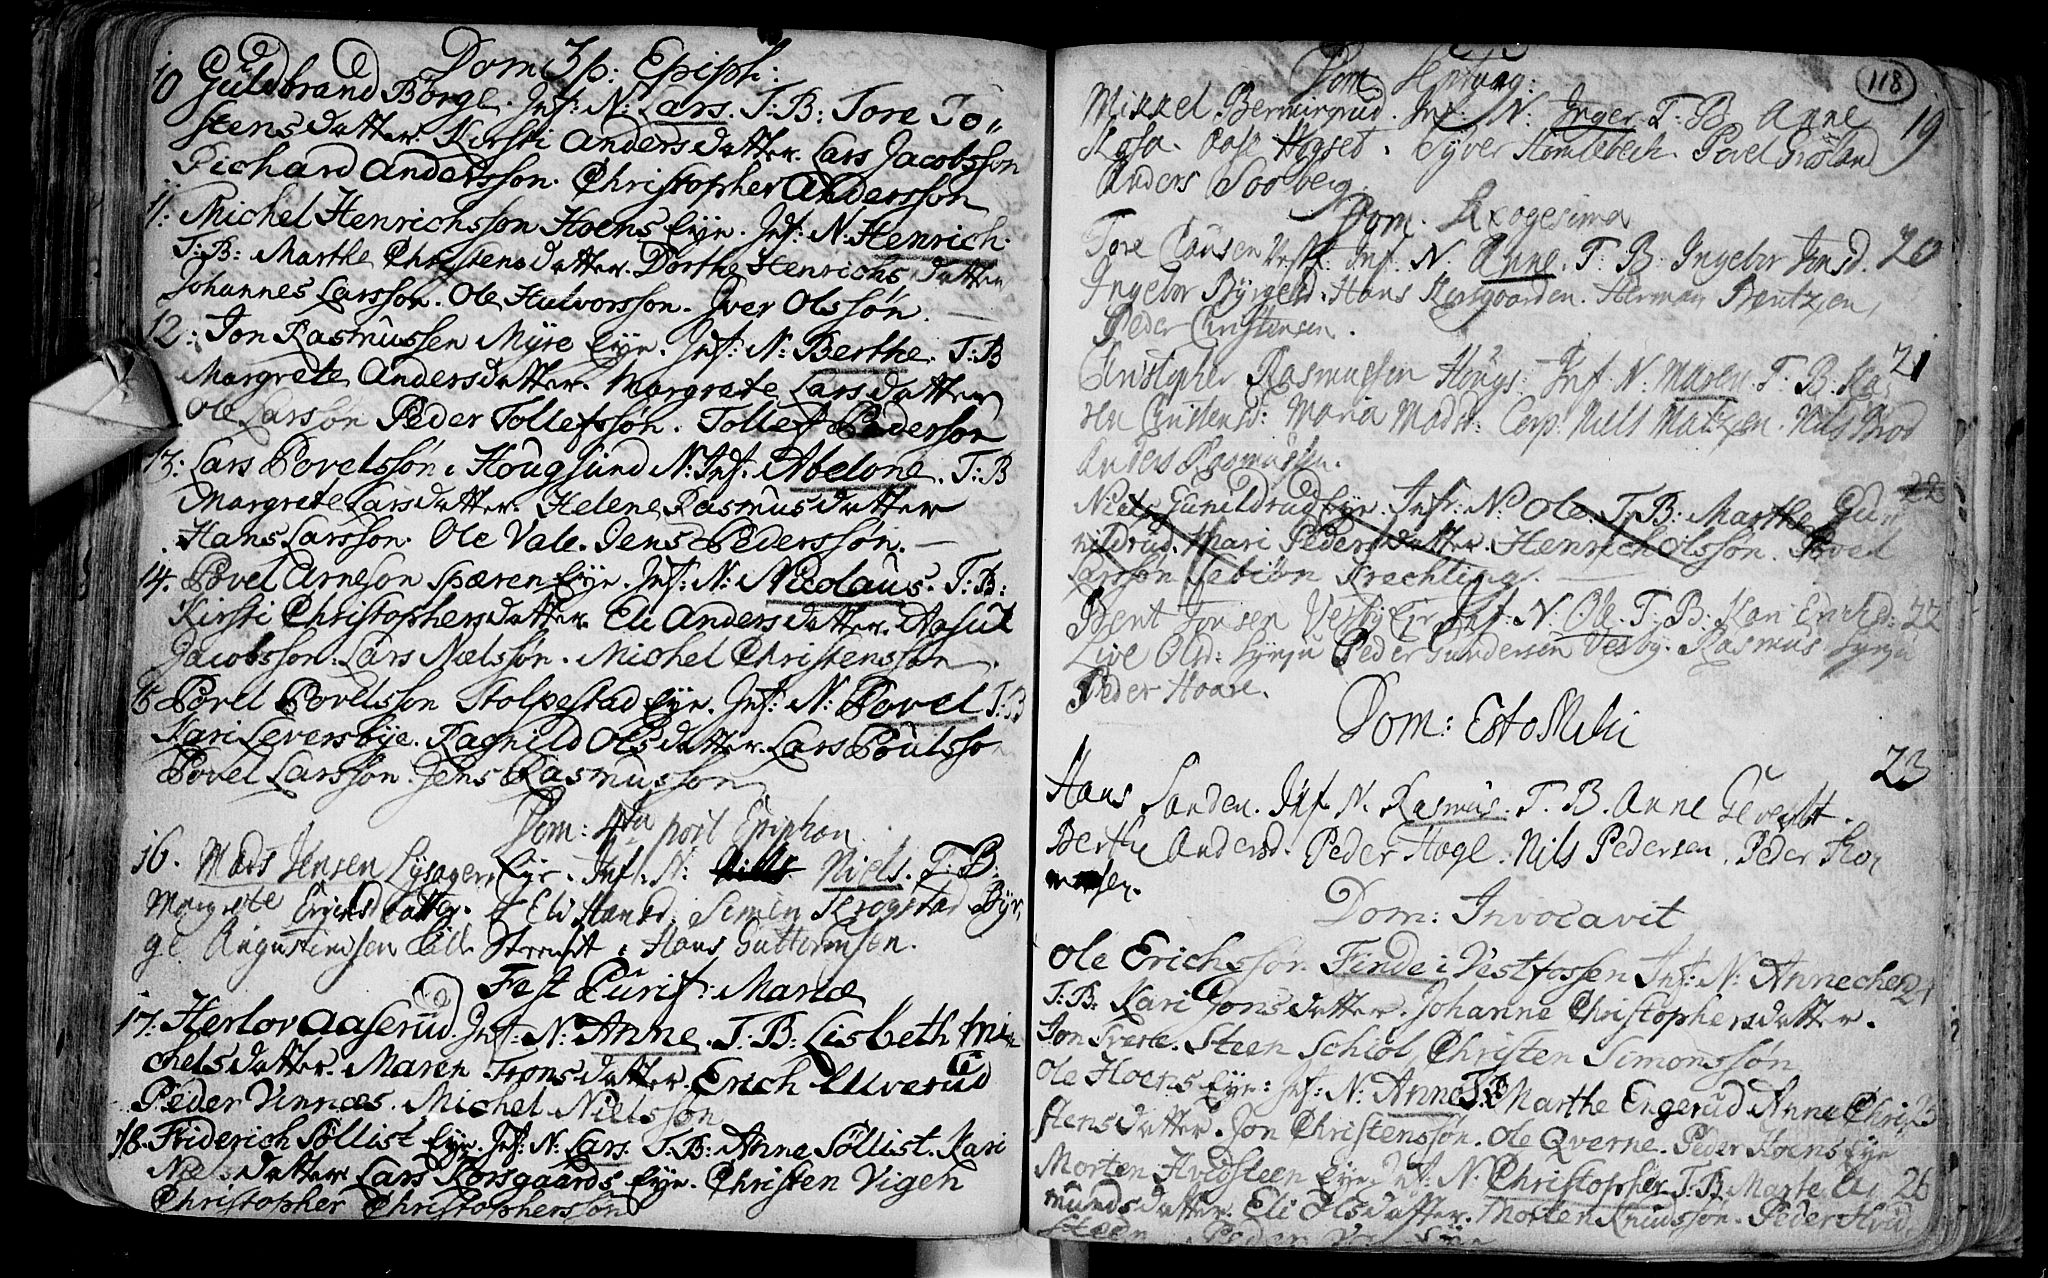 Dom 3 p: Epiph:
10 Guldbrand Børge. Inf: N: Lars. T: B: Tore To„
stensdatter. Kirsti Andersdatter. Lars Jacobsson
Richard Andersson. Christopher Andersson
11. Michel Henrichsson Hoens Eye. Inf: N: Henrich.
T: B: Marthe Christensdatter. Dorthe Henrichsdatter
Johannes Larsson. Ole Hulvorsson. Iver Olssøn.
12: Jon Rasmussen Myre Eye. Inf: N: Berthe. T: B
Margrete Andersdatter. Margrete Larsdatter
Ole Larssøn Peder Tollefssøn. Tollef Pederssøn
13: Lars Povelssøn i Hougsund N: Inf. Abelone. T: B
Margrete Larsdatter. Helene Rasmusdatter
Hans Larsson. Ole Vale. Jens Pederssøn.
14. Povel Arneson Spæren Eye. Inf: N: Nicolaus. T: B:
Kirsti Christophersdatter. Eli Andersdatter. Aasul
Jacobsson. Lars Nielssøn. Michel Christenssøn.
15 Povel Povelsson Stolpestad Eye. Inf: N: Povel T: B
Kari Leversbye. Ragnild Olsdatter. Lars Poulsson
Povel Larsson. Jens Rasmussøn
Dom: 4ta post Epiphan
16. Mads Jensen Lysager Eye. Inf. N: Niels. T. B.
Margrete Erichsdatter. Eli Hansd. Simen Skrogstad Byr,
ge Augustinsen Hans Guttormsen.
Fest Purif: Mariæ
17. Herlov Aaserud. Inf: N: Anne. T: B: Lisbeth Mi
chelsdatter. Maren Tronsdatter. Erich Ulverud
Peder Vinnæs. Michel Nielssøn
18. Friderich Søllist Eye. Inf: N. Lars. T: B: Anne Søllist. Kari
Nielsdatter. Lars Korsgaards Eye. Christen Vigen
Christopher Christopherssøn
118
Dom Septuag:
Mikkel Bermingrud. Inf. N: Inger T. B Anne 19
Kosa. Aase Hogset. Syver Stomlebech. Povel Grøland
Anders Soolberg.
Dom. Sexagesima
Tore Clausen Vestf: Inf. N. Anne. T. B. Ingebor Jensd. 20
Ingebor Byrgesd. Hans Korsgaarden. Herman Brentzen,
Peder Christensen.
Christopher Rasmussen Hougs: Inf: N: Maren. T. B. Ka 21
ren Christensd: Maria Madsd: Corp. Niels Matzen. Nils Brod
Anders Rasmussen.
Niels Gunildrud Eye. Inf: N: Ole. T: B: Marthe Gu 22
nildrud. Mari Pedersdatter. Henrich Olssøn. Povel
Larssøn Sebiøn Krechling.
Bent Jonsen Vesby Eye Inf: N. Ole. T: B: Kari Erichsd: 22
Live Olsd: Peder Gundersen Vesby. Rasmus
Peder Hoare.
Dom: Esto Mihi
Hans Sanden. Inf. N. Rasmus. T. B. Anne Gevelt. 23
Berthe Andersd. Peder Hogl. Nils Pedersen. Peder Thor
Dom: Invocavit
Ole Erichssøn Finde i Vestfossen Inf: N: Annechen 24
T: B: Kari Jonsdatter. Johanne Christophersdatter.
Jon Steen Schiøl, Christen Simonssøn
Ole Hoens Eye: Inf: N: Anne T: B Marthe Engerud Anne Chri
stensdatter. Jon Christenssøn. Ole Qverne. Peder Hoens Eye
Morten Hvidsteen Eye. Inf: N: Christopher T: B. Marte A 26
mundsdatter. Eli Olsdatter. Morten Knudssøn. Peder Hvid
steen. Peder